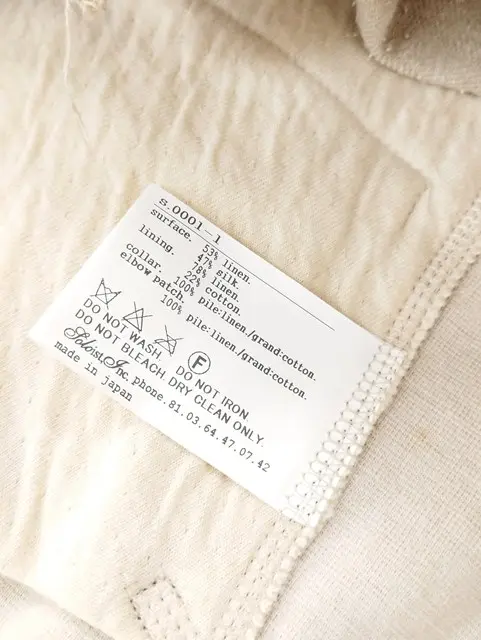 s.0001-1
surface. 53% linen.
47% silk.
lining. 78% linen.
22% cotton.
collar. 100% pile:linen./grand:cotton.
elbow patch.
100% pile:linen./grand:cotton.
F
DO NOT WASH. DO NOT IRON.
DO NOT BLEACH. DRY CLEAN ONLY.
Soloist. Inc. phone. 81.03.64.47.07.42
made in japan